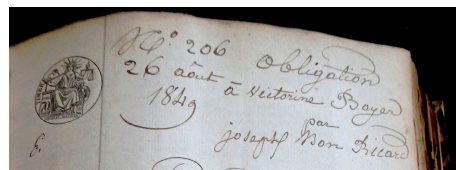 N.º 206 Obligation
26 août à Victorine Boyer
1849 par
joseph Bon Ricard